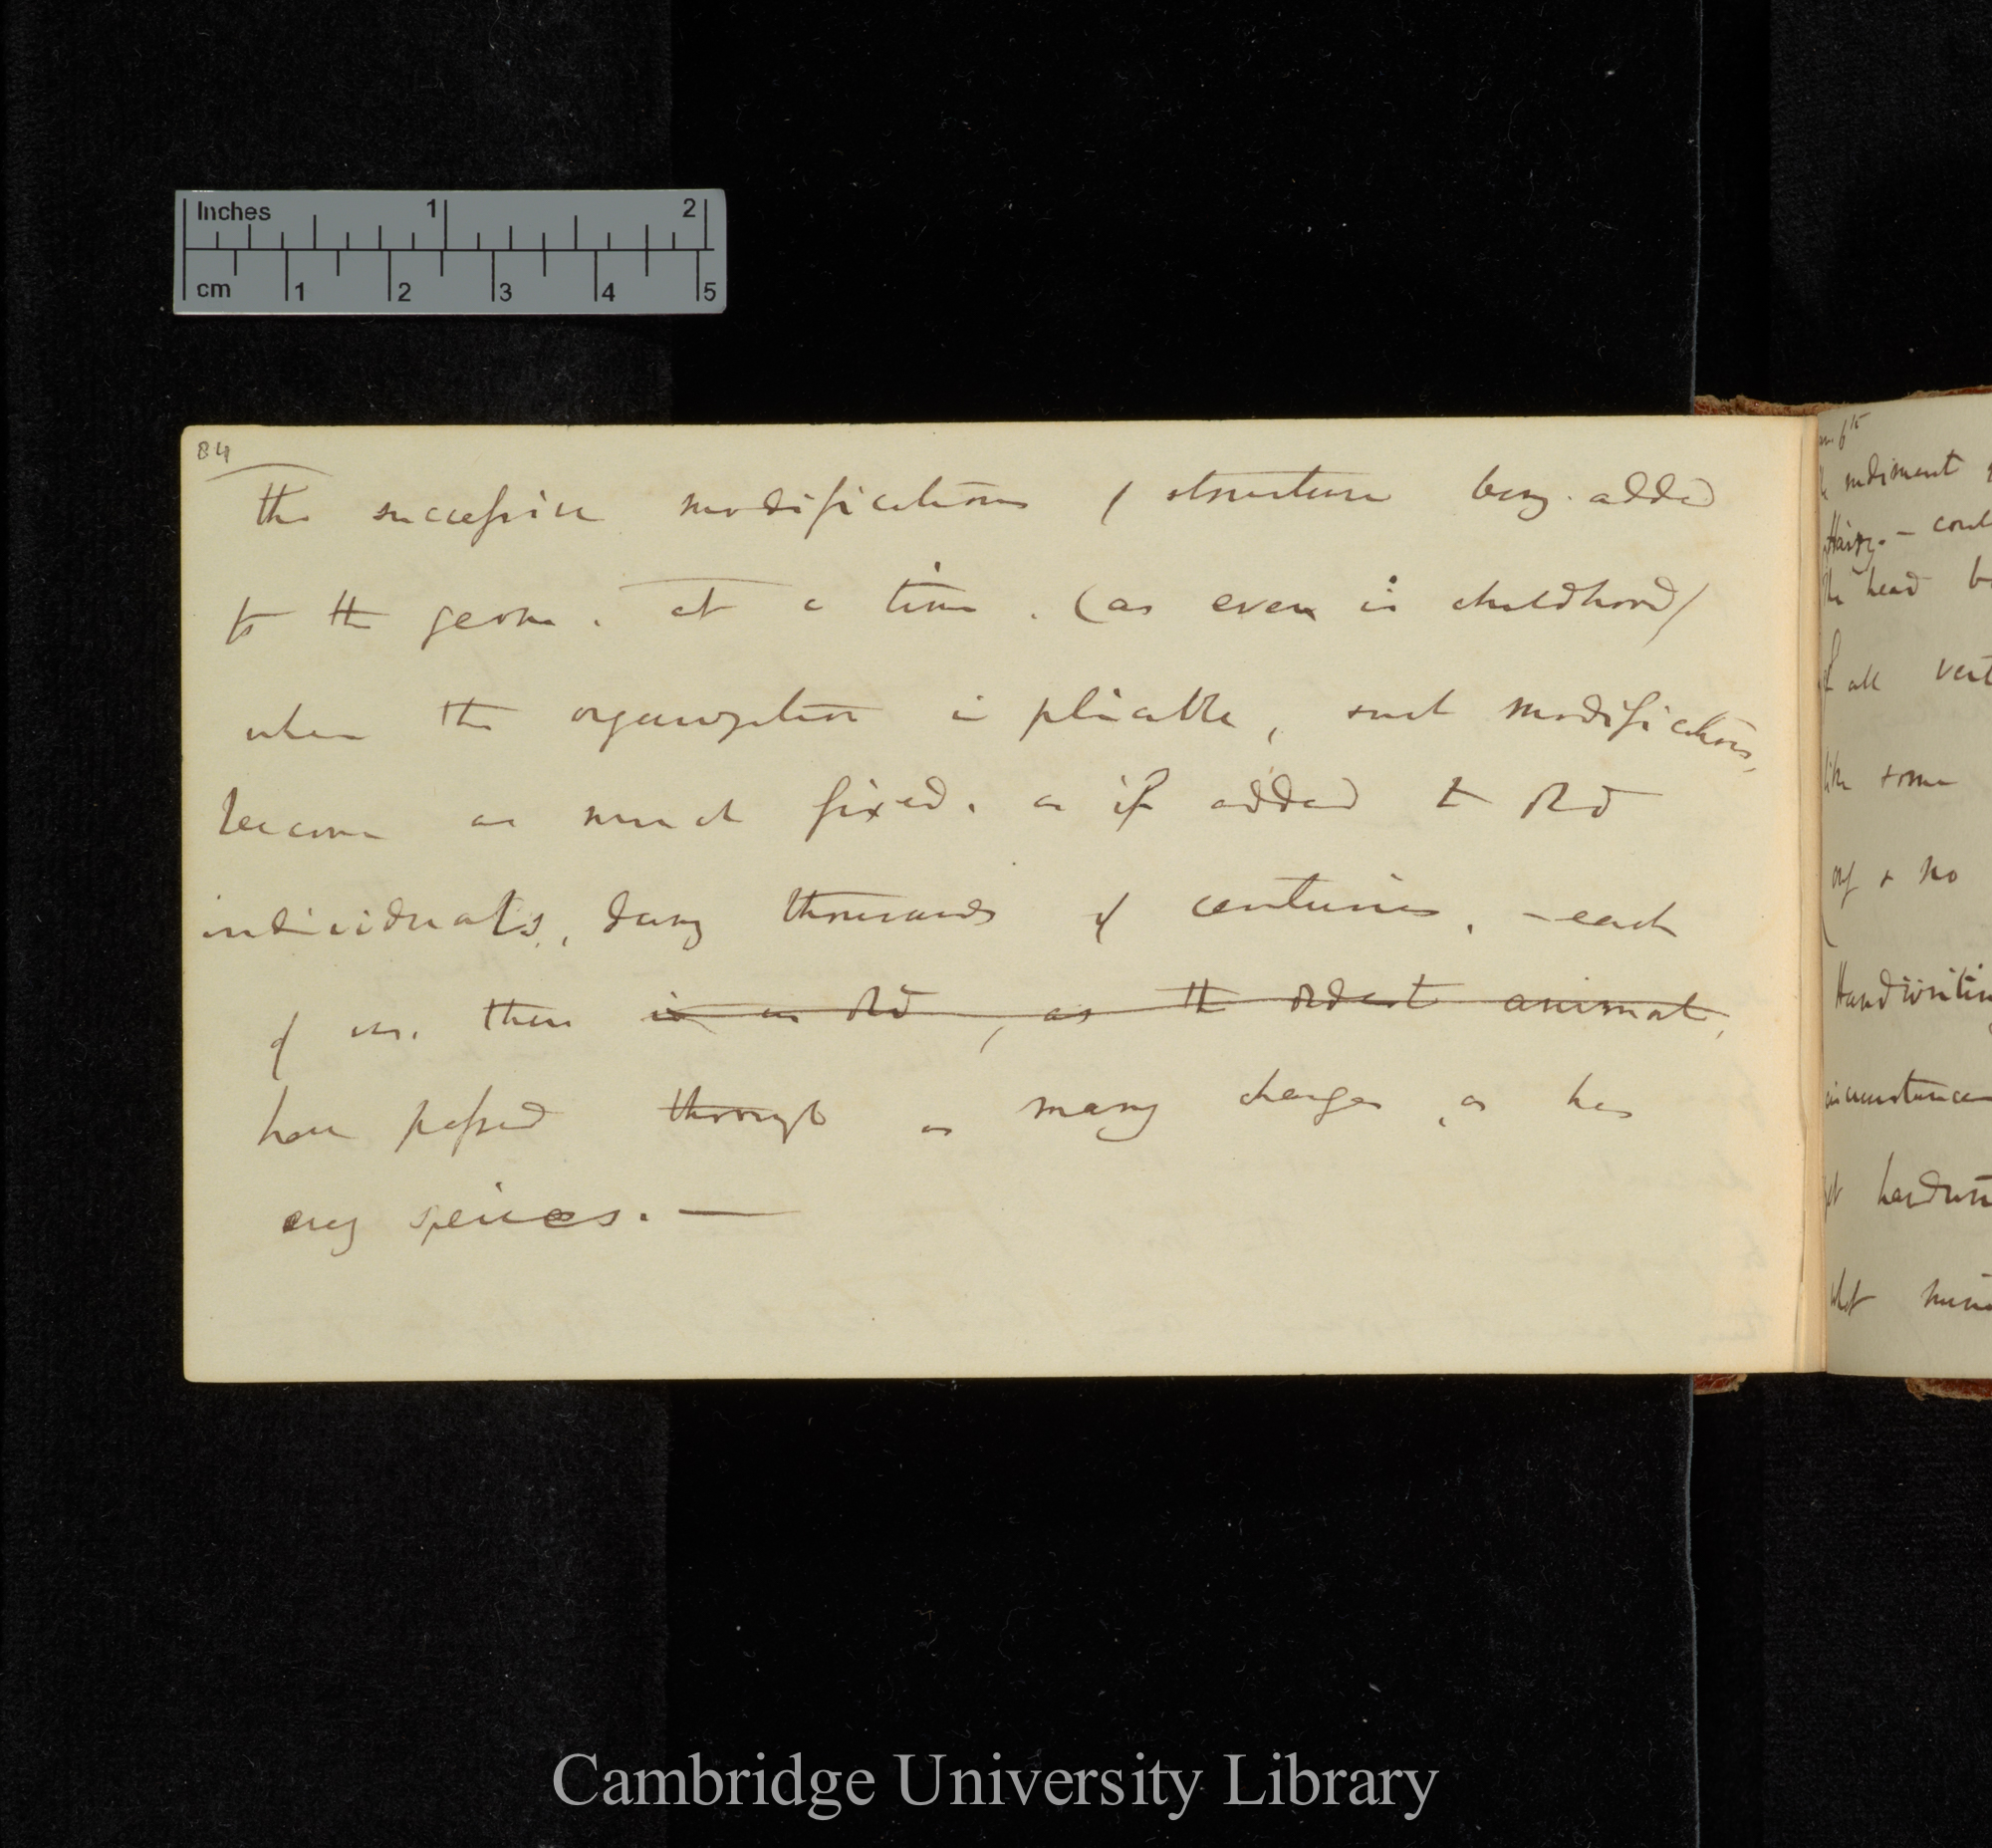 Inches 1 2
cm 1 2 3 4 5
84
The successive modifications of structure being added
to the germ, at a time, (as even in childhood)
when the organization is pliable, such modifications,
become as much fixed, as if added to old
individuals, during thousands of centuries, – each
of us, then is as old, as the oldest animal,
have passed through as many changes, as has
every species. —
rudiment
Hairy. – 
the head
of all vert
like some
& no
Handwritin
circumstances
handwri
what
Cambridge University Library